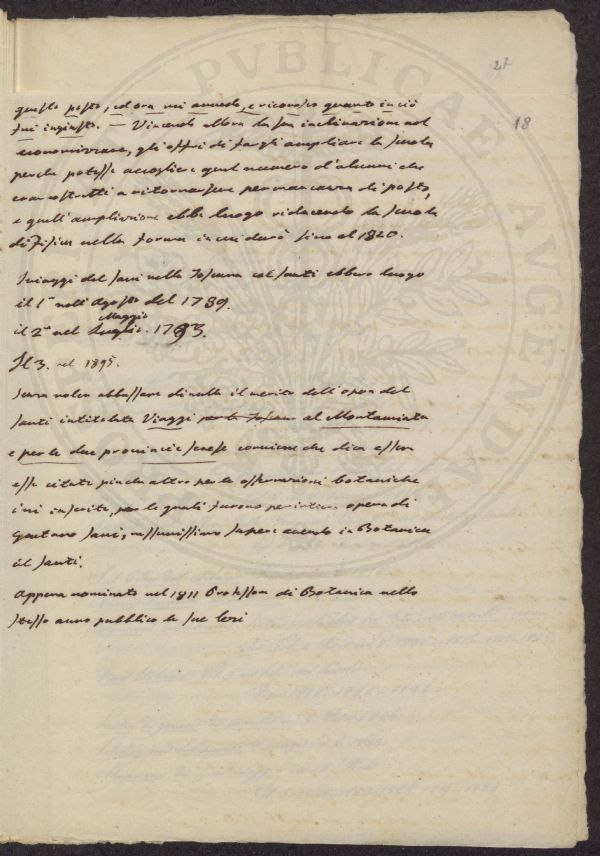 27
18
questo posto, ed ora mi avvedo, e riconosco quanto in ciò
fui ingiusto. — Vincendo allora la sua inclinazione ad
economizzare, gli offri di fargli ampliare la scuola
perché potesse accogliere quel numero d'alunni che
eran costretti a ritornarsene per mancanza di posto,
e quell'ampliazione ebbe luogo riducendo la scuola
di Fisica nella forma in cui durò fino al 1840.
I viaggi del Savi nella Toscana col Santi ebbero luogo
il 1° nell'Agosto del 1789.
Maggio
il 2° nel Luglio 1793.
Il 3. nel 1895.
Senza voler abbassare di nulla il merito dell'opera del
Santi intitolata Viaggi per la Toscana al Montamiata
e per le due provincie Senesi conviene che dica esser
esse citate più che altro per le osservazioni botaniche
ivi inserite, per le quali furono per intero opera di
Gaetano Savi, nessunissimo sapere avendo in Botanica
il Santi.
Appena nominato nel 1811 Professore di Botanica nello
stesso anno pubblicò le sue lezi